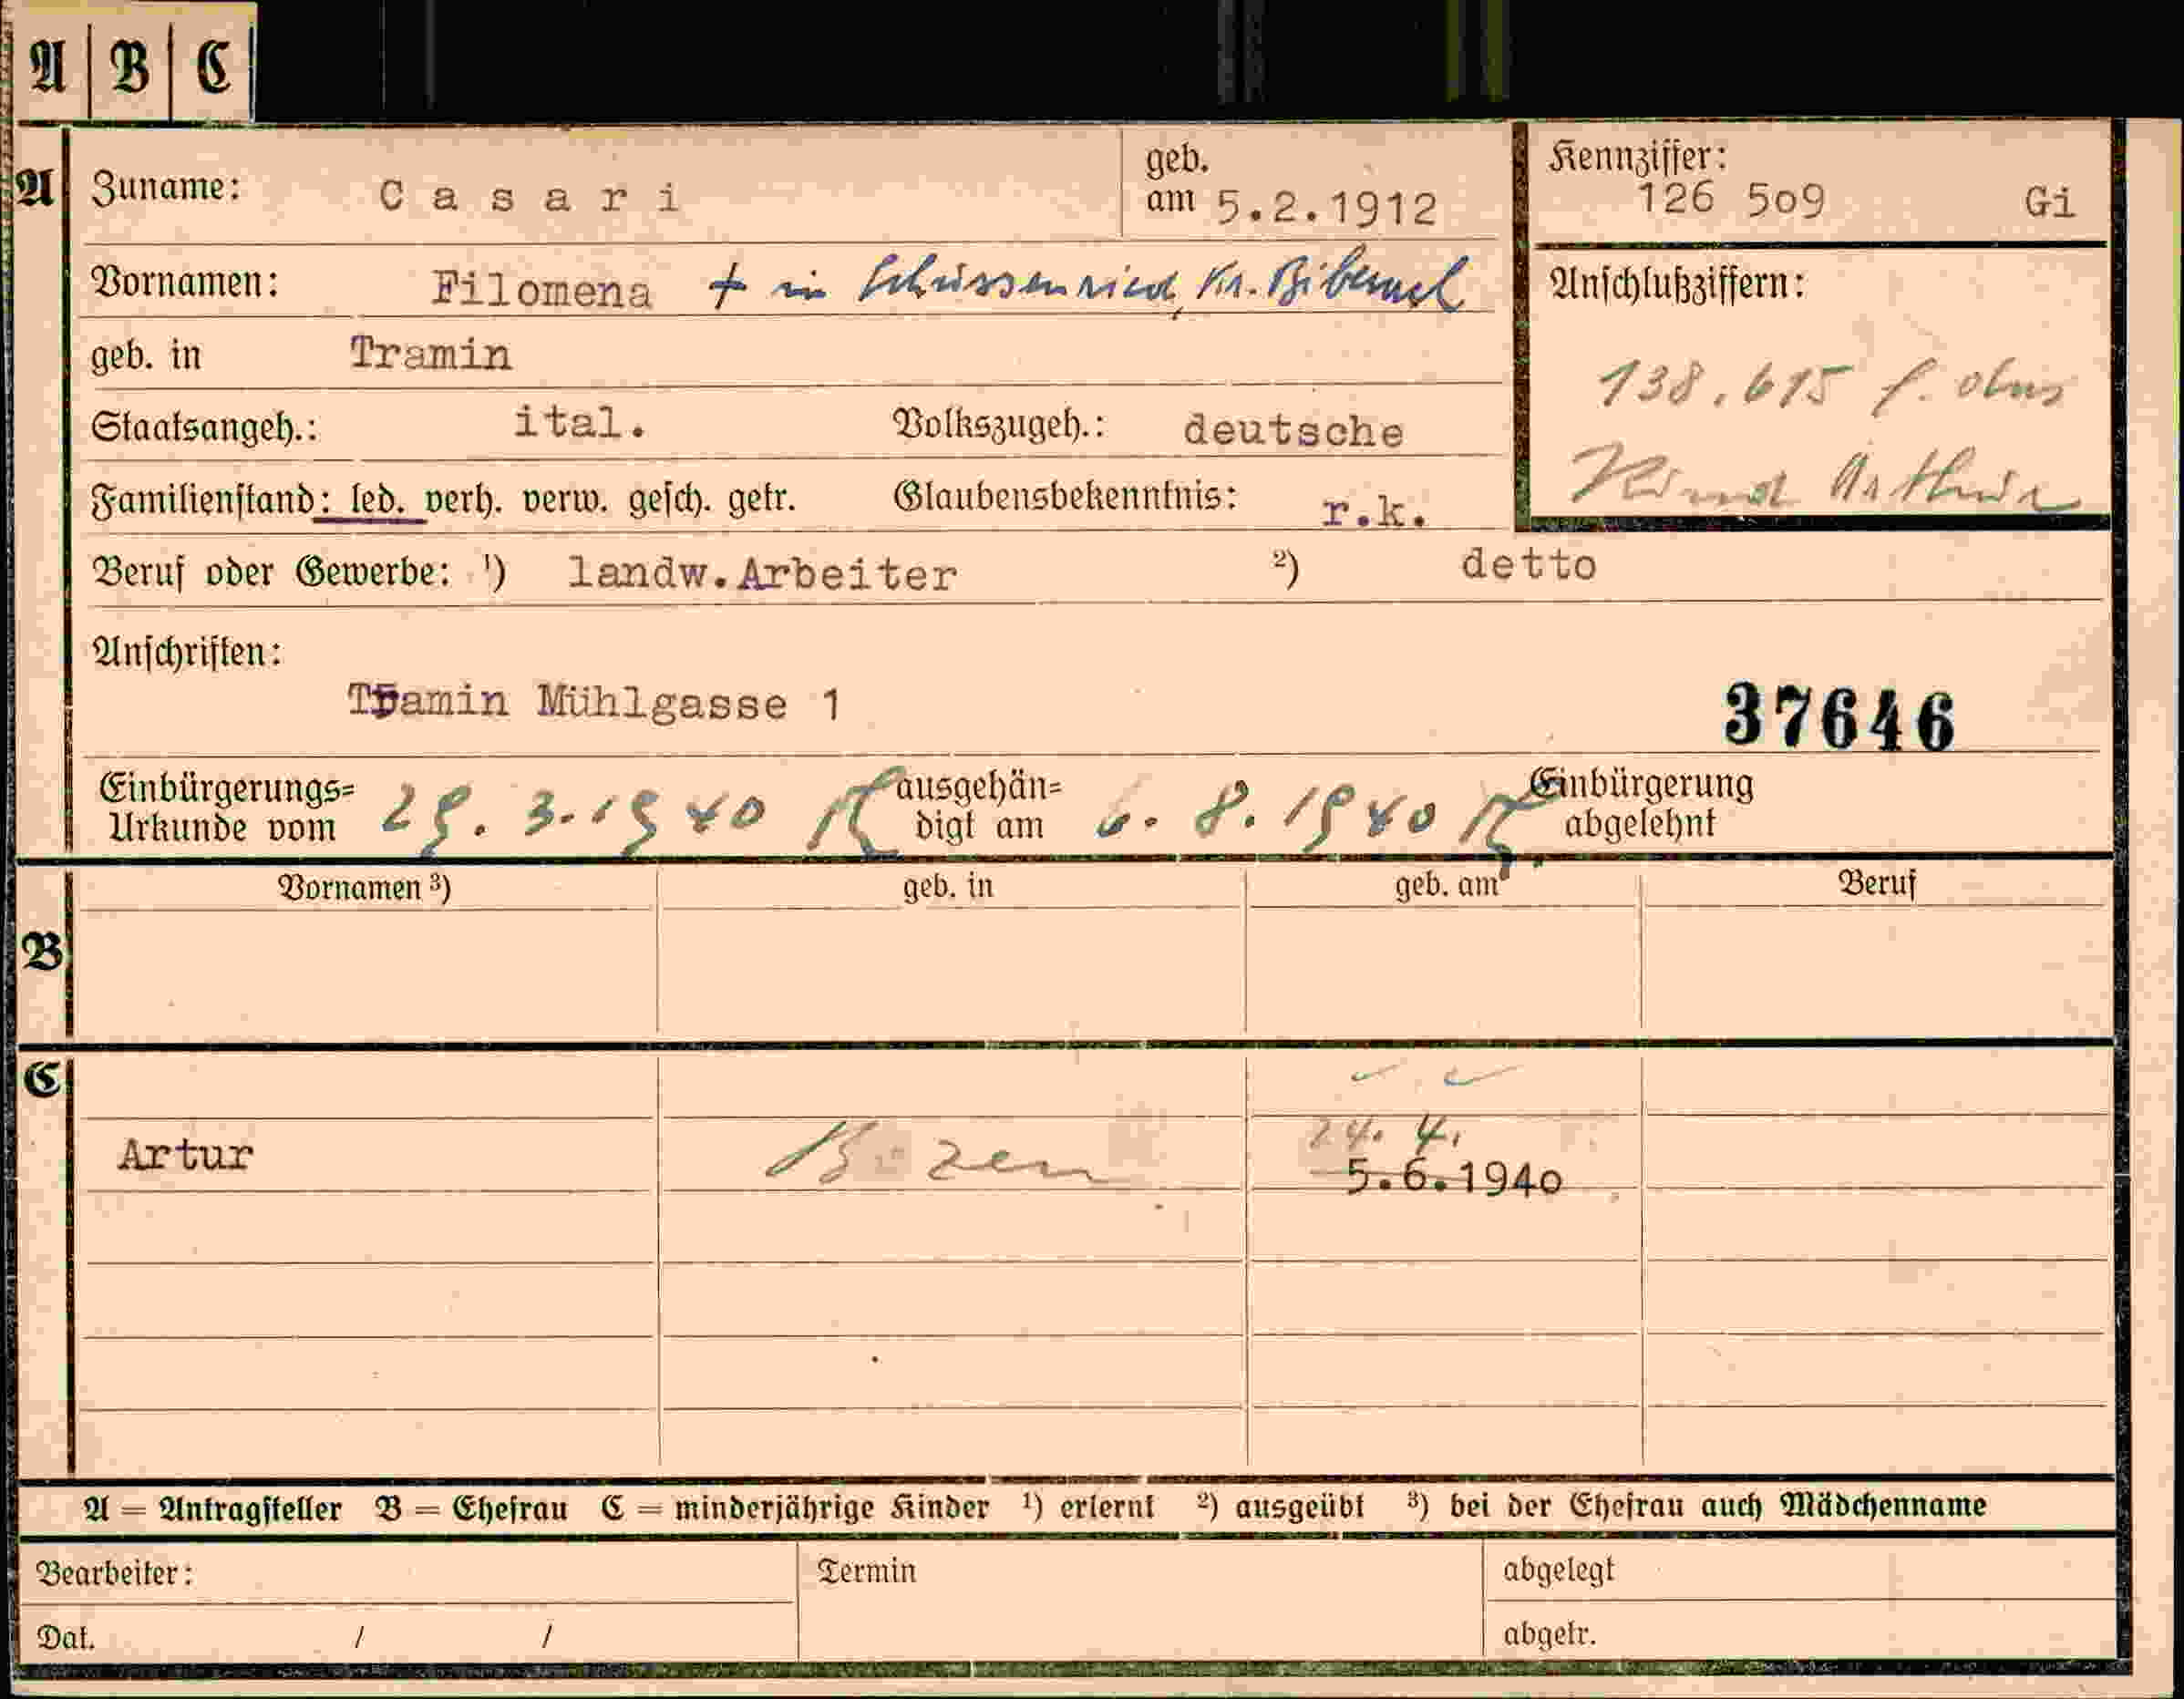 A B C
A Zuname: Casari geb. am 5.2.1912 Kennziffer: 126 5o9 Gi
Vornamen: Filomena + in Schussenried, Kr. Biberach Anschlußziffern:
geb. in Tramin
138.615 f.
Staatsangeh.: ital. Volkszugeh.: deutsche
Kind Arthur
Familienstand: led. verh. verw. gesch. getr. Glaubensbekenntnis: r.k.
Beruf oder Gewerbe: ¹) landw.Arbeiter ²) detto
Anschriften:
Tramin Mühlgasse 1 37646
Einbürgerungs= ausgehän= Einbürgerung
Urkunde vom 29. 3. 1940 digt am 6. 8. 1940 abgelehnt
B Vornamen ³) geb. in geb. am Beruf
C
24. 4.
Artur Bozen 5.6.194o
A = Antragsteller B = Ehefrau C = minderjährige Kinder ¹) erlernt ²) ausgeübt ³) bei der Ehefrau auch Mädchenname
Bearbeiter: Termin abgelegt
Dat. / / abgetr.